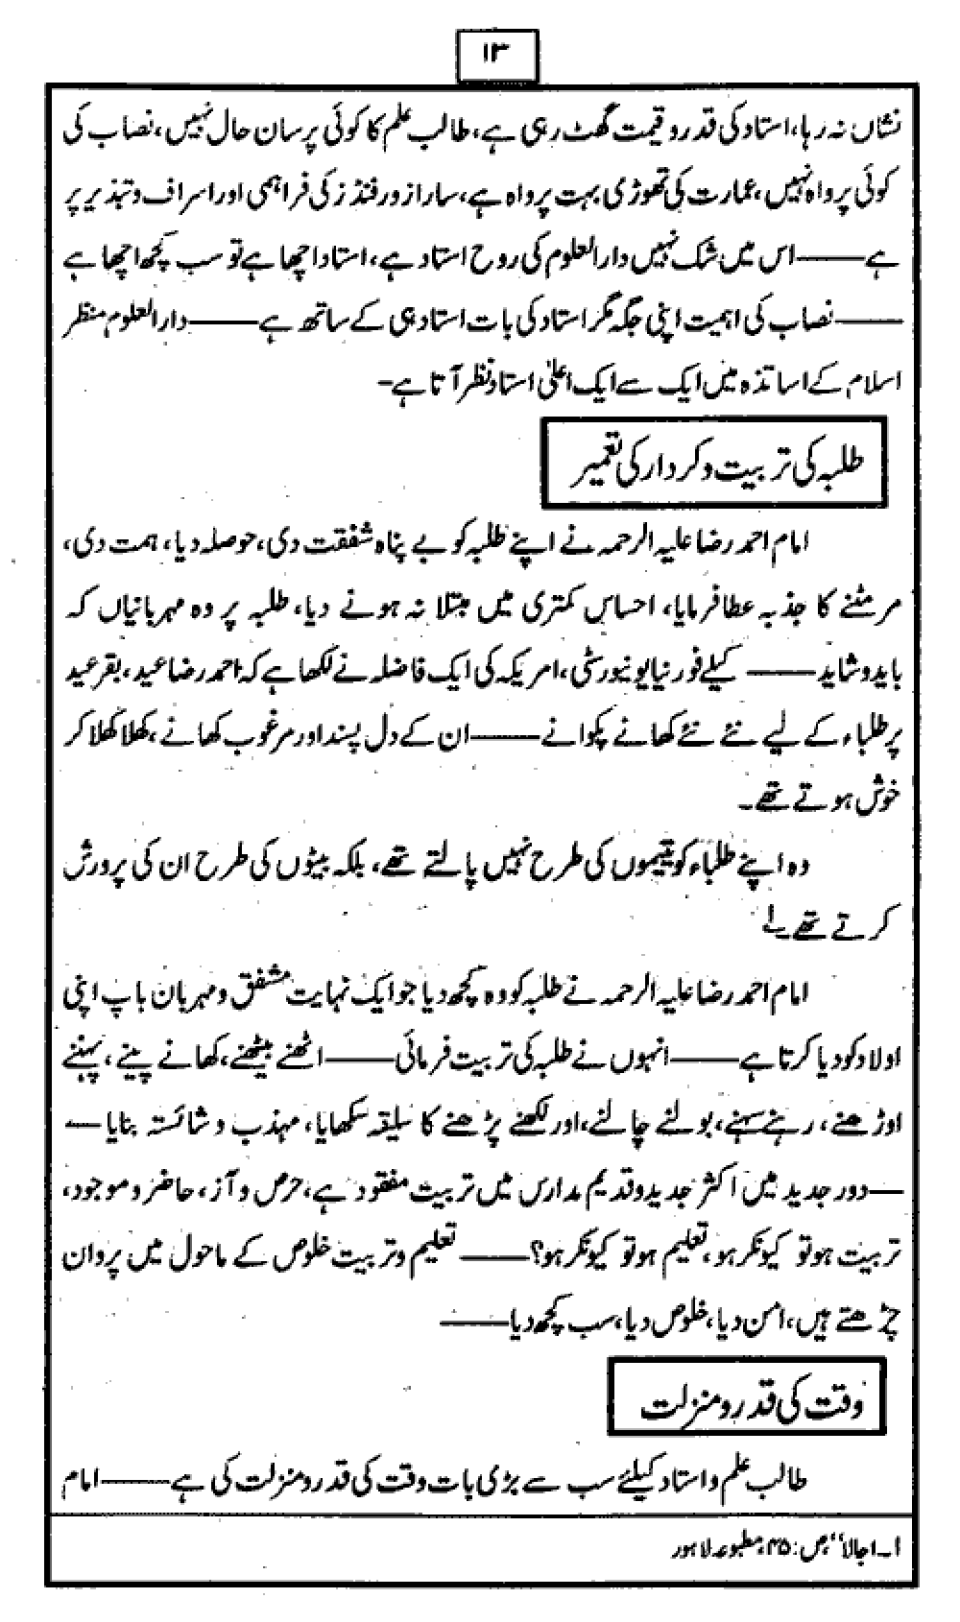 ۱۳
نشاں نہ رہا، استاد کی قدر و قیمت گھٹ رہی ہے، طالب علم کا کوئی پرسان حال نہیں، نصاب کی
کوئی پرواہ نہیں، عمارت کی تھوڑی بہت پرواہ ہے، سارا زور فنڈز کی فراہمی اور اسراف و تبذیر پر
ہے——اس میں شک نہیں دارالعلوم کی روح استاد ہے، استاد اچھا ہے تو سب کچھ اچھا ہے
——نصاب کی اہمیت اپنی جگہ مگر استاد کی بات استاد ہی کے ساتھ ہے——دارالعلوم منظر
اسلام کے اساتذہ میں ایک سے ایک اعلیٰ استاد نظر آتا ہے۔
طلبہ کی تربیت و کردار کی تعمیر
امام احمد رضا علیہ الرحمہ نے اپنے طلبہ کو بے پناہ شفقت دی، حوصلہ دیا، ہمت دی،
مر مٹنے کا جذبہ عطا فرمایا، احساس کمتری میں مبتلا نہ ہونے دیا، طلبہ پر وہ مہربانیاں کہ
باید و شاید—— کیلے فورنیا یونیورسٹی، امریکہ کی ایک فاضلہ نے لکھا ہے کہ احمد رضا عید، بقر عید
پر طلباء کے لیے نئے نئے کھانے پکوانے——ان کے دل پسند اور مرغوب کھانے، کھلا کھلا کر
خوش ہوتے تھے۔
وہ اپنے طلباء کو یتیموں کی طرح نہیں پالتے تھے، بلکہ بیٹوں کی طرح ان کی پرورش
کرتے تھے۔۱
امام احمد رضا علیہ الرحمہ نے طلبہ کو وہ کچھ دیا جو ایک نہایت مشفق و مہربان باپ اپنی
اولاد کو دیا کرتا ہے——انہوں نے طلبہ کی تربیت فرمائی——اٹھنے بیٹھنے، کھانے پینے، پہننے
اوڑھنے، رہنے سہنے، بولنے چالنے، اور لکھنے پڑھنے کا سلیقہ سکھایا، مہذب و شائستہ بنایا—
—دور جدید میں اکثر جدید و قدیم مدارس میں تربیت مفقود ہے، حرص و آز، حاضر و موجود،
تربیت ہو تو کیونکر ہو، تعلیم ہو تو کیونکر ہو؟——تعلیم و تربیت خلوص کے ماحول میں پروان
چڑھتے ہیں، امن دیا، خلوص دیا، سب کچھ دیا——
وقت کی قدر و منزلت
طالب علم و استاد کیلئے سب سے بڑی بات وقت کی قدر و منزلت کی ہے——امام
۱۔ اجالا"، ص: ۴۵، مطبوعہ لاہور